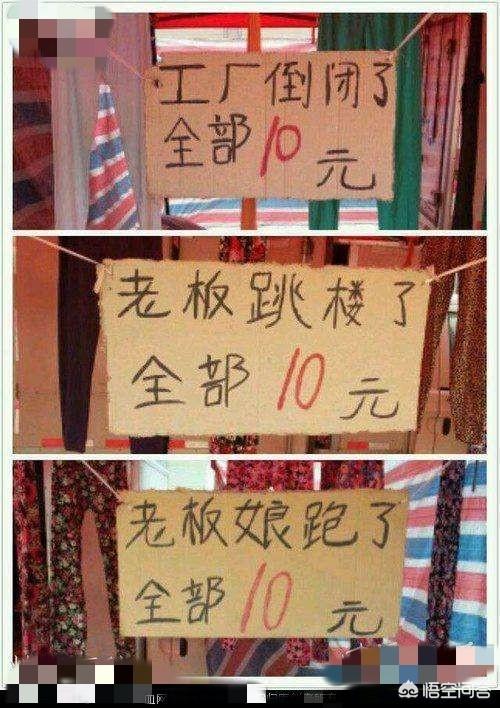 工厂倒闭了
全部10元
老板跳楼了
全部10元
老板娘跑了
全部10元
悟空问答